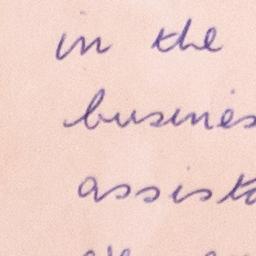 in the
busines
assista